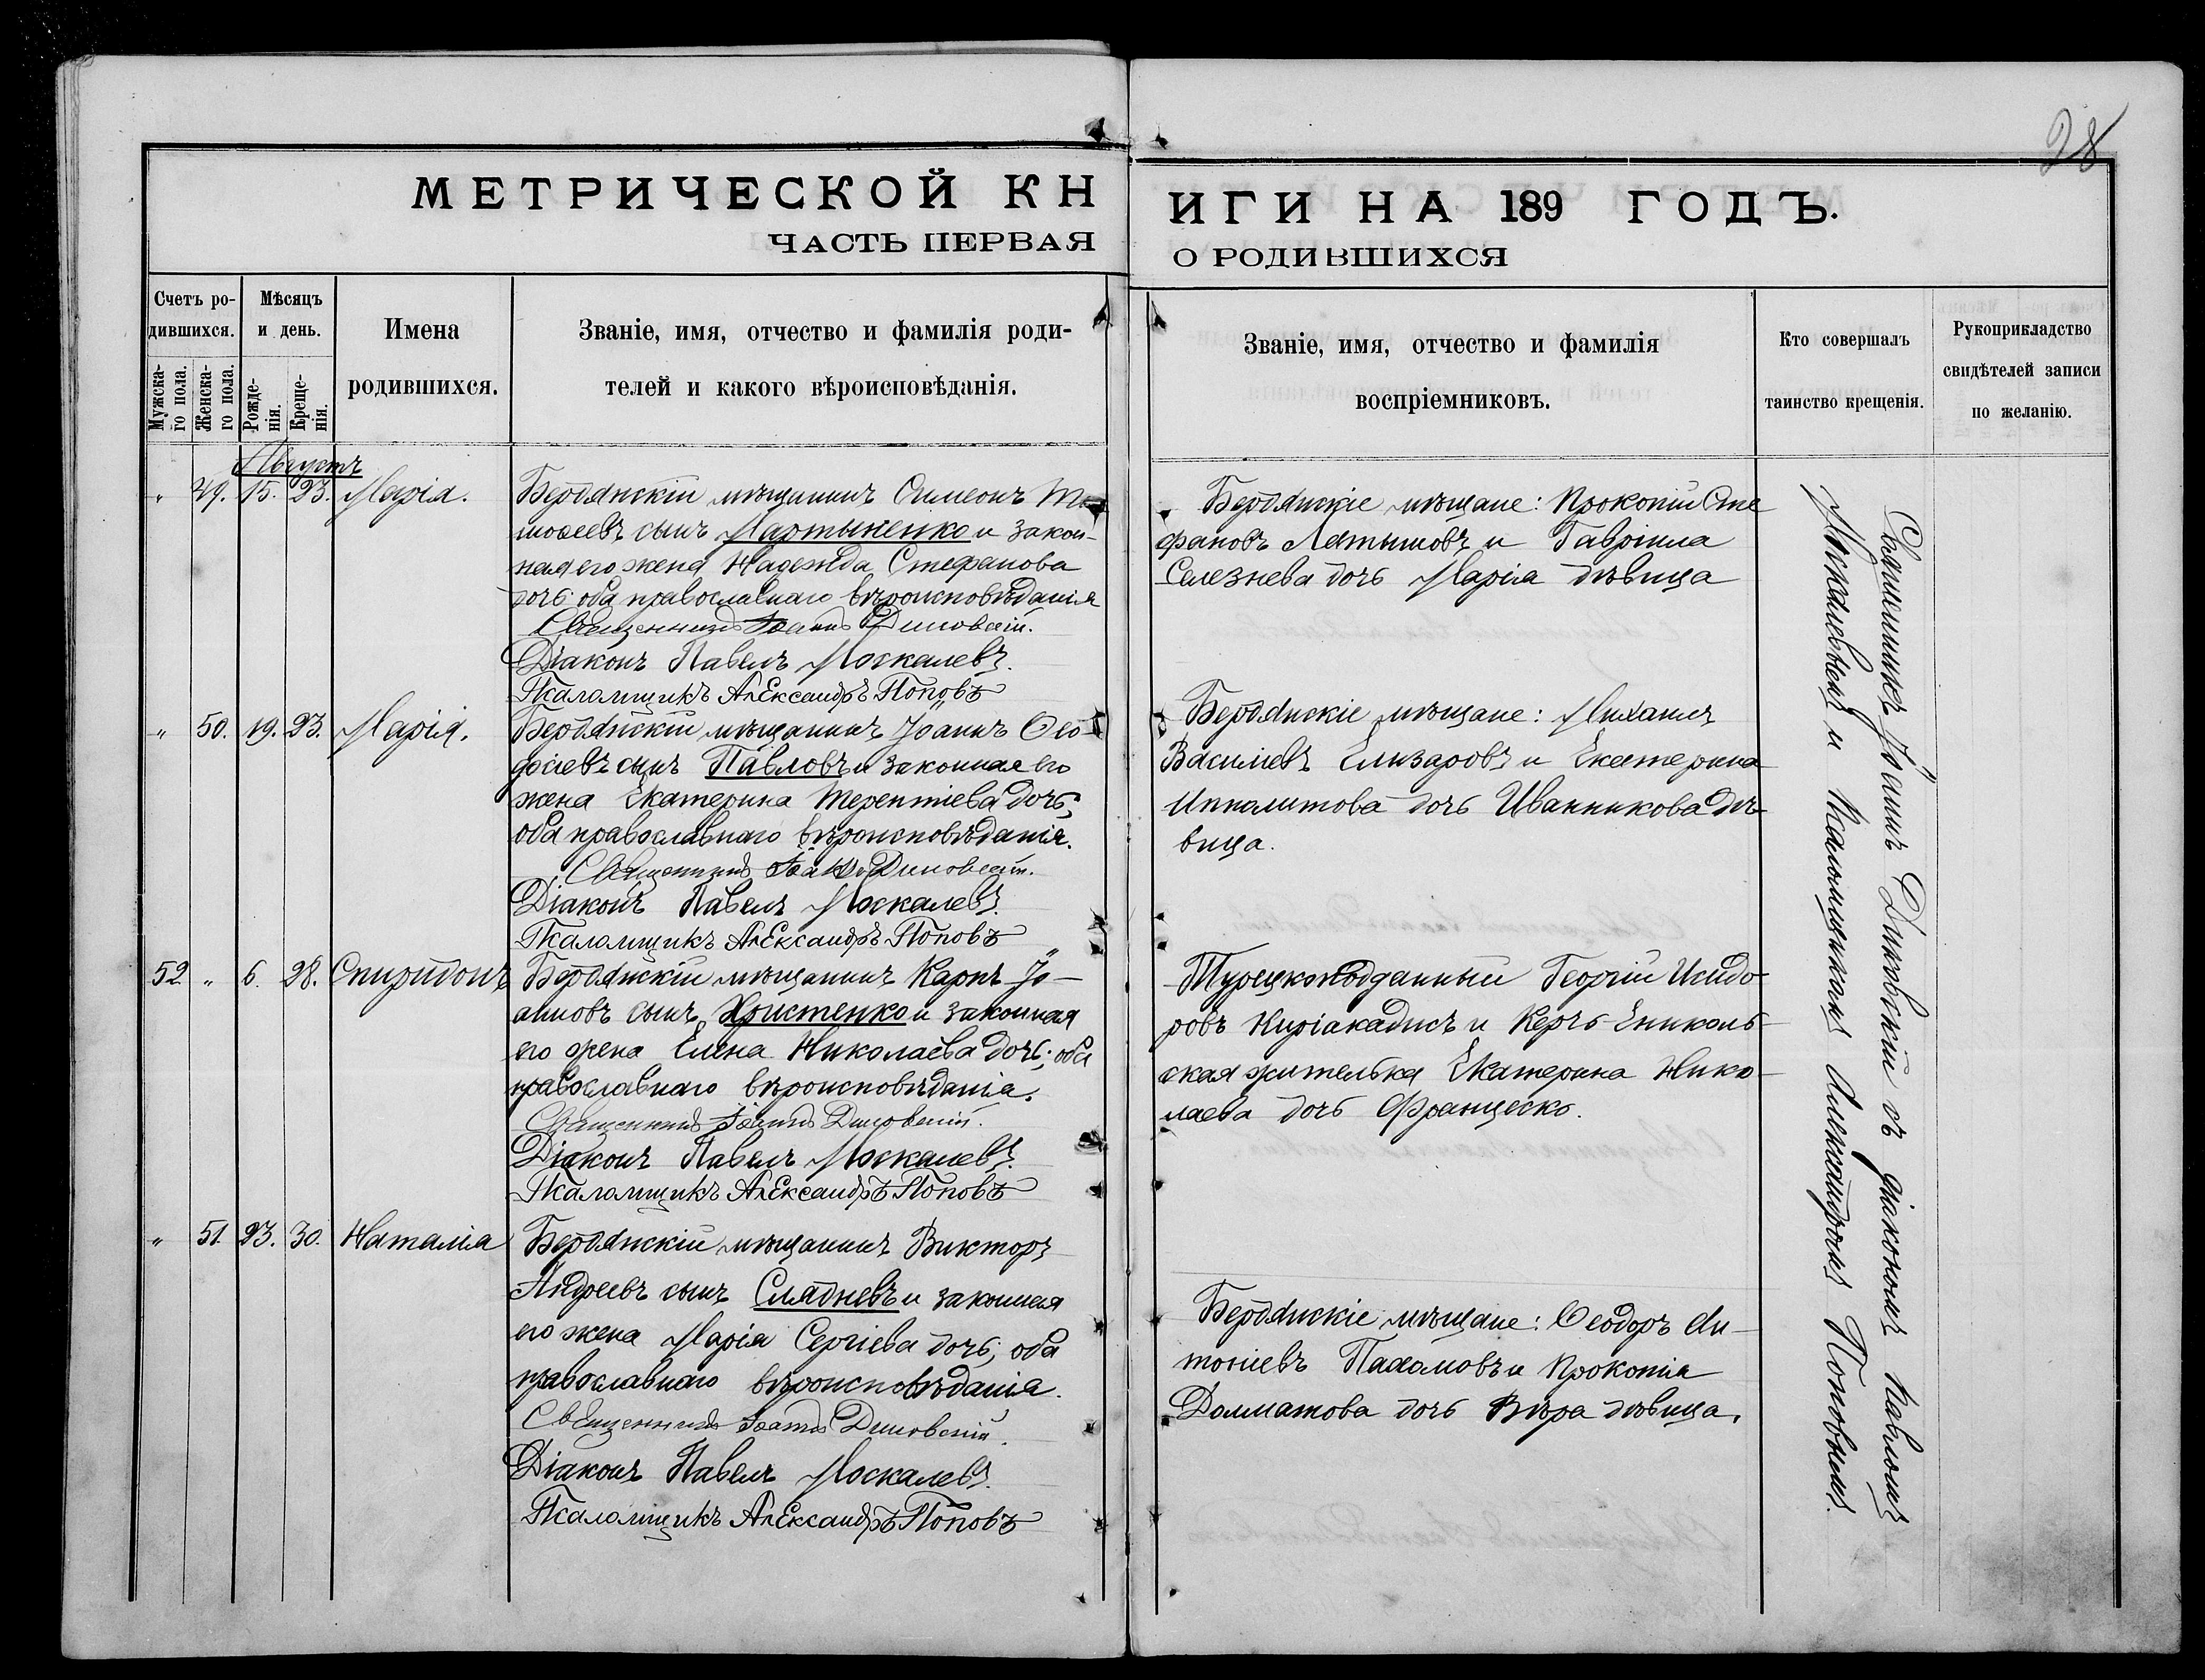 28
МЕТРИЧЕСКОЙ КН
ЧАСТЬ ПЕРВАЯ
ИГИ НА 189 ГОДЪ.
О РОДИВШИХСЯ
Счетъ ро-
дившихся.
Мужска-
го пола.
Женска-
го пола.
Мѣсяцъ
и день.
Рожде-
нія.
Креще-
нія.
Имена
родившихся.
Званіе, имя, отчество и фамилія роди-
телей и какого вѣроисповѣданія.
Званіе, имя, отчество и фамилія
воспріемниковъ.
Кто совершалъ
таинство крещенія.
Рукоприкладство
свидѣтелей записи
по желанію.
Августъ
" 49. 15. 23. Марія.
Бердянскій мѣщанинъ Симеонъ Ти-
моѳеевъ сынъ Мартыненко и закон-
ная его жена Надежда Стефанова
дочь оба православнаго вѣроисповѣданія
Священникъ Іоаннъ Диковскій.
Діаконъ Павелъ Москалевъ.
Псаломщикъ Александръ Поповъ
Бердянскіе мѣщане: Прокопій Сте
фановъ Латышовъ и Гавріила
Селезнева дочь Марія дѣвица
" 50. 19. 23. Марія.
Бердянскій мѣщанинъ Іоаннъ Ѳео-
досіевъ сынъ Павловъ и законная его
жена Екатерина Терентіева дочь;
оба православнаго вѣроисповѣданія.
Священникъ Іоаннъ Диковскій.
Діаконъ Павелъ Москалевъ.
Псаломщикъ Александръ Поповъ
Бердянскіе мѣщане: Михаилъ
Василіевъ Елизаровъ и Екатерина
Ипполитова дочь Иванникова дѣ-
вица.
52 " 6. 28. Спиридонъ
Бердянскій мѣщанинъ Карпъ Іо-
анновъ сынъ Христенко и законная
его жена Елена Николаева дочь; оба
православнаго вѣроисповѣданія.
Священникъ Іоаннъ Диковскій.
Діаконъ Павелъ Москалевъ.
Псаломщикъ Александръ Поповъ
Турецкоподданный Георгій Исидо-
ровъ Киріакадисъ и Керчь-Ениколь-
ская жителька Екатерина Нико-
лаева дочь Франческо.
" 51. 23. 30. Наталія
Бердянскій мѣщанинъ Викторъ
Андреевъ сынъ Слядневъ и законная
его жена Марія Сергіева дочь; оба
православнаго вѣроисповѣданія.
Священникъ Іоаннъ Диковскій.
Діаконъ Павелъ Москалевъ.
Псаломщикъ Александръ Поповъ
Бердянскіе мѣщане: Ѳеодоръ Ан-
тоніевъ Пахомовъ и Прокопія
Долматова дочь Вѣра дѣвица.
Священникъ Іоаннъ Диковскій съ діакономъ Павломъ
Москалевымъ и Псаломщикомъ Александромъ Поповымъ.